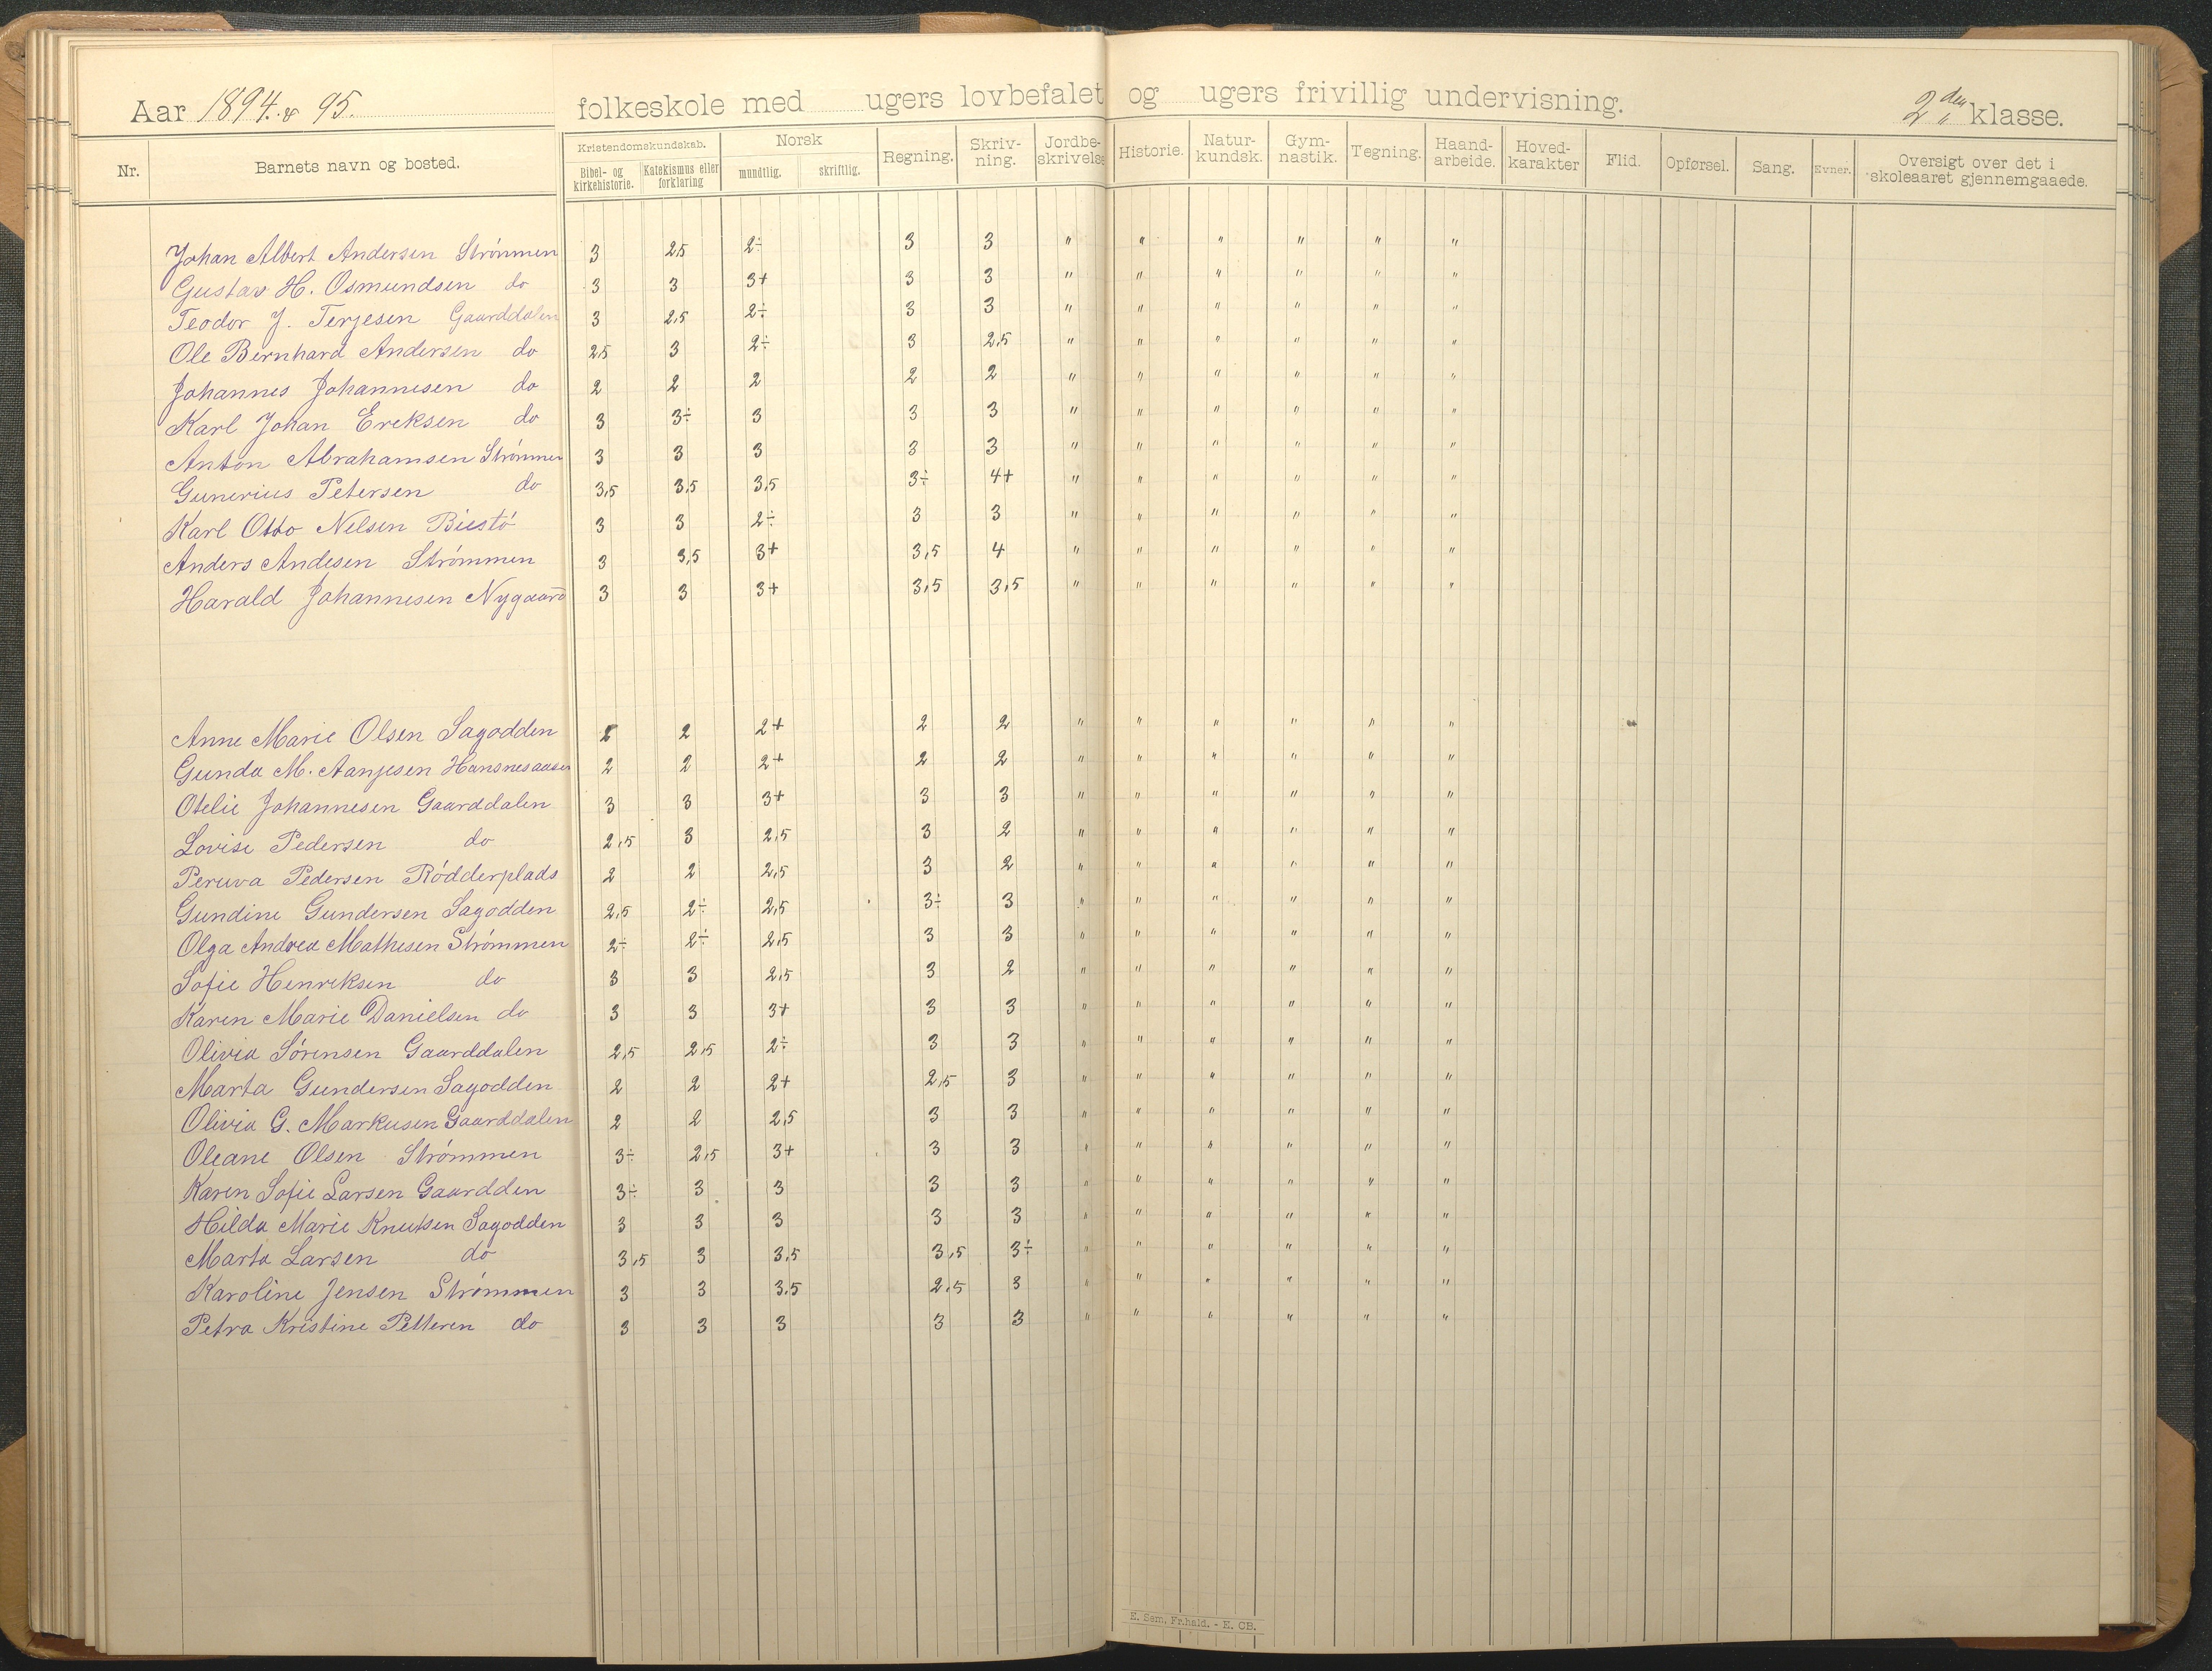 Aar 1894. & 95. folkeskole med ugers lovbefalet og ugers frivillig undervisning. 2den klasse.
Nr. Barnets navn og bosted. Kristendomskundskab. Bibel- og kirkehistorie. Katekismus eller forklaring Norsk mundtlig. skriftlig. Regning. Skriv-ning. Jordbe-skrivelse Historie. Natur-kundsk. Gym-nastik. Tegning. Haand-arbeide. Hoved-karakter Flid. Opførsel. Sang. Evner. Oversigt over det i skoleaaret gjennemgaaede.
Johan Albert Andersen Strömmen 3 2,5 2÷ 3 3 " " " " " "
Gustav H. Osmundsen do 3 3 3+ 3 3 " " " " " "
Teodor J. Terjesen Gaarddalen 3 2,5 2÷ 3 3 " " " " " "
Ole Bernhard Andersen do 2,5 3 2÷ 3 2,5 " " " " " "
Johannes Johannesen do 2 2 2 2 2 " " " " " "
Karl Johan Ereksen do 3 3÷ 3 3 3 " " " " " "
Anton Abrahamsen Strömmen 3 3 3 3 3 " " " " " "
Gunerius Petersen do 3,5 3,5 3,5 3÷ 4+ " " " " " "
Karl Otto Nelsen Biestö 3 3 2÷ 3 3 " " " " " "
Anders Andesen Strömmen 3 3,5 3+ 3,5 4 " " " " " "
Harald Johannesen Nygaard 3 3 3+ 3,5 3,5 " " " " " "
Anne Marie Olsen Sagodden 2 2 2+ 2 2 " " " " " "
Gunda M. Aanjesen Hansnesaasen 2 2 2+ 2 2 " " " " " "
Otelie Johannesen Gaarddalen 3 3 3+ 3 3 " " " " " "
Lovise Pedersen do 2,5 3 2,5 3 2 " " " " " "
Peruva Pedersen Rödderplads 2 2 2,5 3 2 " " " " " "
Gundine Gundersen Sagodden 2,5 2÷ 2,5 3÷ 3 " " " " " "
Olga Andrea Mathisen Strömmen 2÷ 2÷ 2,5 3 3 " " " " " "
Sofie Henreksen do 3 3 2,5 3 2 " " " " " "
Karen Marie Danielsen do 3 3 3+ 3 3 " " " " " "
Olivia Sörensen Gaarddalen 2,5 2,5 2÷ 3 3 " " " " " "
Marta Gundersen Sagodden 2 2 2+ 2,5 3 " " " " " "
Olivia G. Markusen Gaarddalen 2 2 2,5 3 3 " " " " " "
Oleane Olsen Strömmen 3÷ 2,5 3+ 3 3 " " " " " "
Karen Sofie Larsen Gaardden 3÷ 3 3 3 3 " " " " " "
Hilda Marie Knutsen Sagodden 3 3 3 3 3 " " " " " "
Marta Larsen do 3,5 3 3,5 3,5 3÷ " " " " " "
Karoline Jensen Strömmen 3 3 3,5 2,5 3 " " " " " "
Petra Kristine Petteren do 3 3 3 3 3 " " " " " "
E. Sem, Fr.hald. - E. CB.